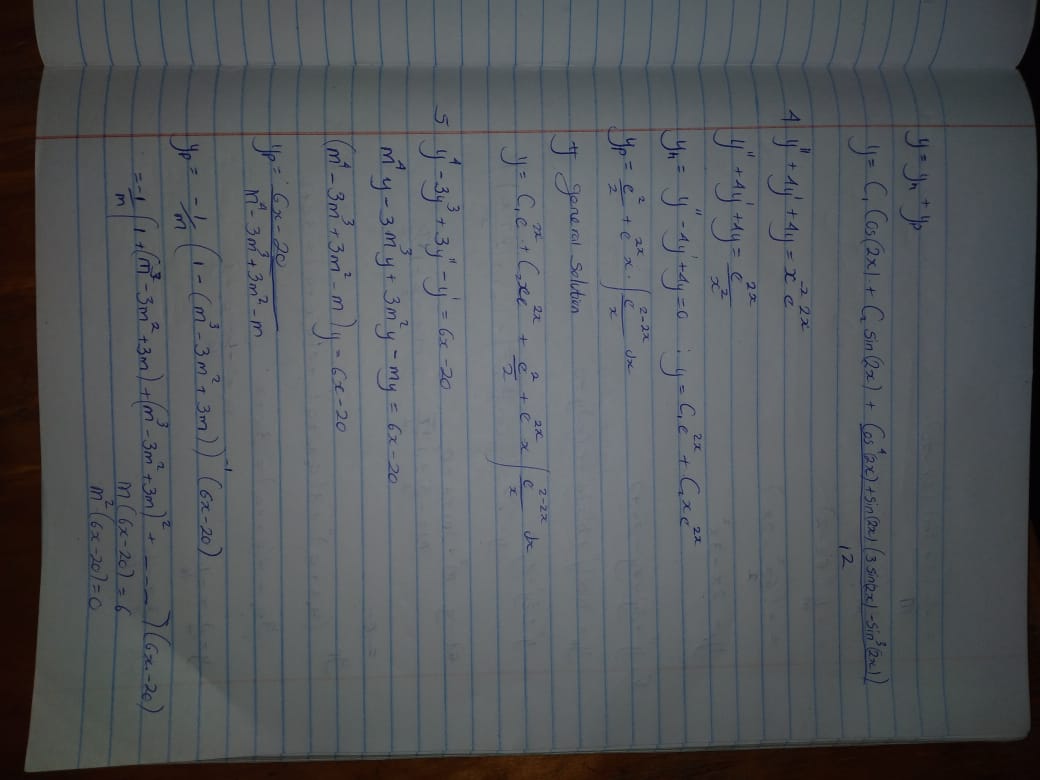 y = yh + yp
y = C₁ Cos(2x) + C₂ Sin(2x) + (Cos⁴(2x) + sin(2x) (3 sin(2x) - sin³(2x))) / 12
4 y'' + 4y' + 4y = x⁻² e²ˣ
y'' + 4y' + 4y = e²ˣ / x²
yh = y'' - 4y' + 4y = 0 ; y = C₁ e²ˣ + C₂ x e²ˣ
yp = e²/2 + e²ˣ x ∫ e²⁻²ˣ / x dx
y general solution
y = C₁ e²ˣ + C₂ x e²ˣ + e²/2 + e²ˣ x ∫ e²⁻²ˣ / x dx
5 y⁴ - 3y³ + 3y'' - y' = 6x - 20
m⁴y - 3m³y + 3m²y - my = 6x - 20
(m⁴ - 3m³ + 3m² - m) y = 6x - 20
yp = (6x - 20) / (m⁴ - 3m³ + 3m² - m)
yp = -1/m (1 - (m³ - 3m² + 3m))⁻¹ (6x - 20)
= -1/m (1 + (m³ - 3m² + 3m) + (m³ - 3m² + 3m)² + ----) (6x - 20)
m(6x - 20) = 6
m²(6x - 20) = 0